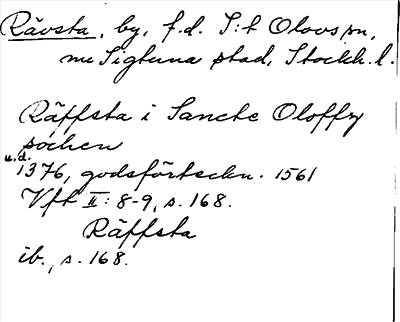 Rävsta, by, f.d. S:t Olovs sn,
nu Sigtuna stad, Stockh. l.
Räffsta i Sancte Oloffz
sochen
u.d.
1376, godsförteckn. 1561
Vft II: 8-9, s. 168.
Räffsta
ib., s. 168.